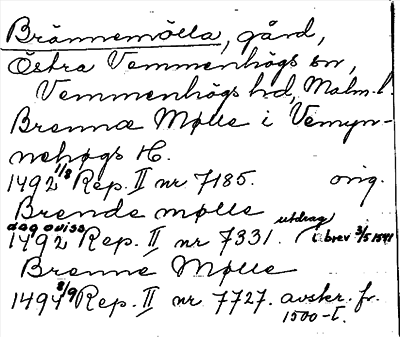 Brännemölla, gård,
Östra Vemmenhögs sn,
Vemmenhögs hd, Malm. l.
Brennæ Mølle i Vemyn-
nehøgs H.
1492 1/8 Rep. II nr 7185. orig.
Brende mølle
dag oviss utdrag
1492 Rep. II nr 7331. i brev 3/5 1541
Brenne Mølle
1494 8/9 Rep. II nr 7727. avskr. fr.
1500-t.